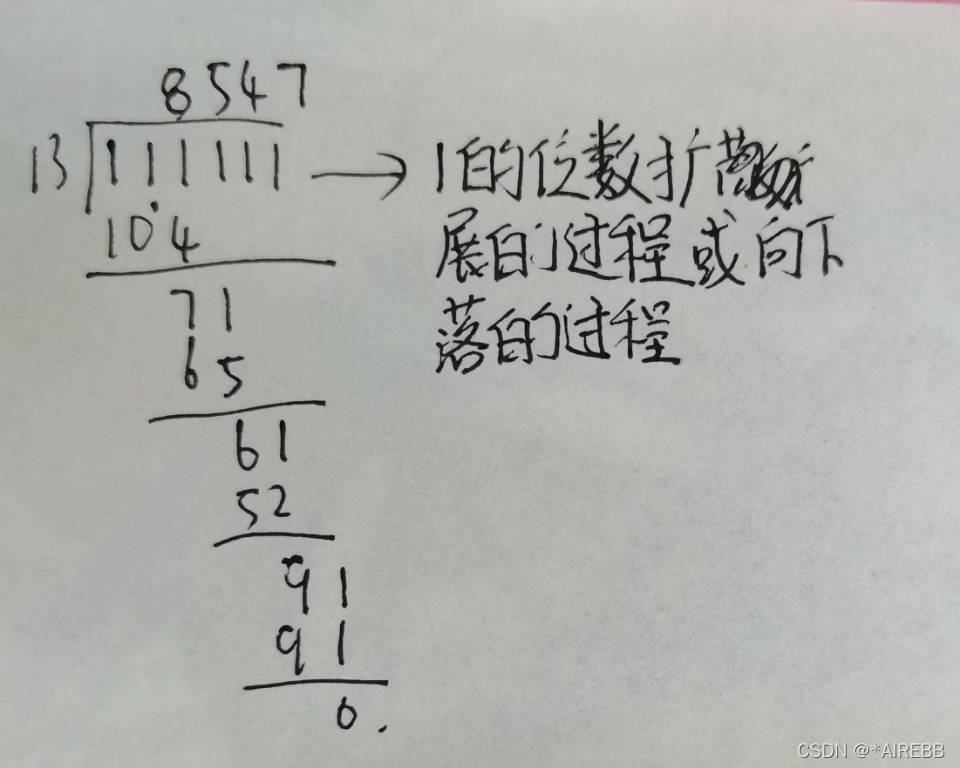 8547
13 111111 → 1的位数扩
104
展的过程或向下
落的过程
71
65
61
52
91
91
0.
CSDN @*AIREBB